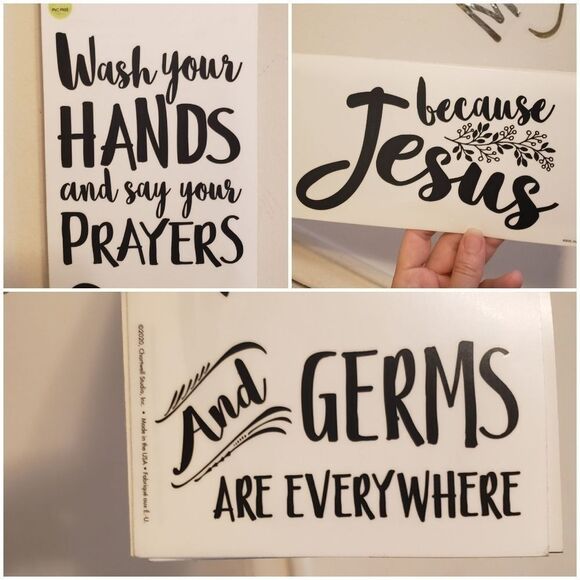 PVC FREE
Wash your
HANDS
and say your
PRAYERS
because
Jesus
And GERMS
ARE EVERYWHERE
©2020, Chartwell Studio, Inc. • Made in the USA • Fabriqué aux É.-U.